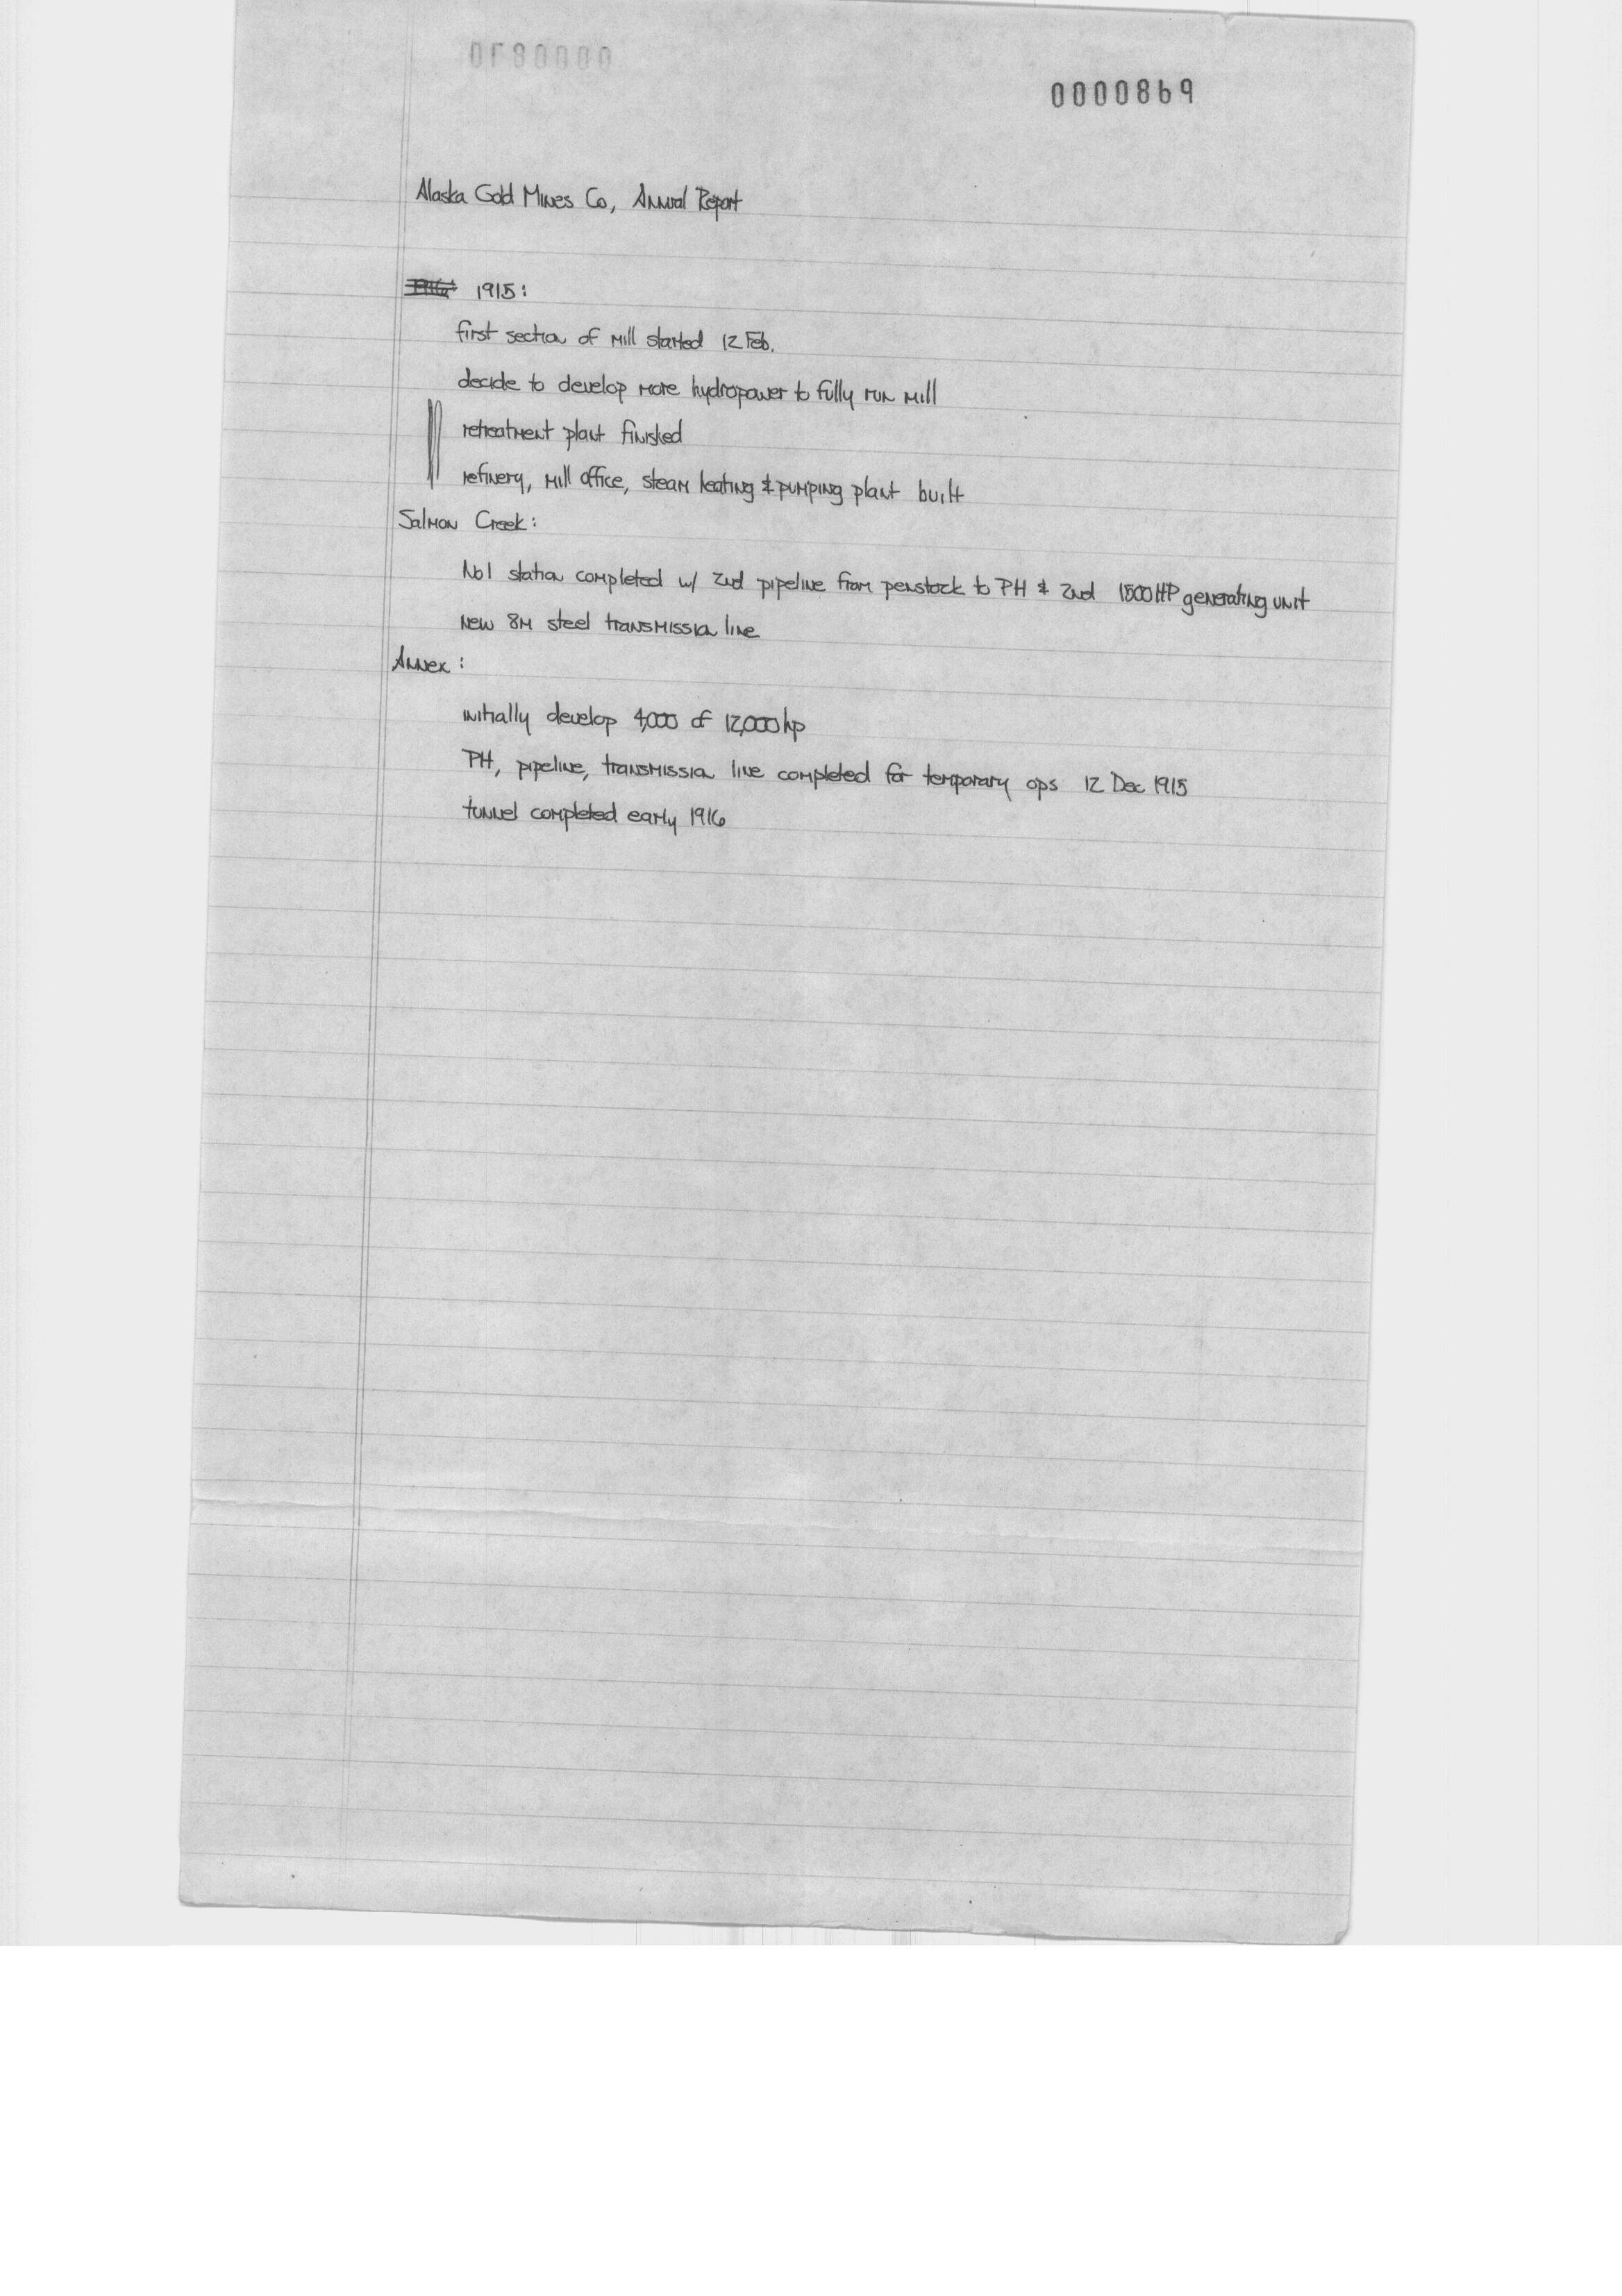 0000869
Alaska Gold Mines Co, Annual Report
1915:
first section of mill started 12 Feb.
decide to develop more hydropower to fully run mill
retreatment plant finished
refinery, mill office, steam heating & pumping plant built
Salmon Creek:
No1 station completed w/ 2nd pipeline from penstock to PH & 2nd 1500HP generating unit
new 8M steel transmission line
Annex:
initially develop 4,000 of 12,000hp
PH, pipeline, transmission line completed for temporary ops 12 Dec 1915
tunnel completed early 1916